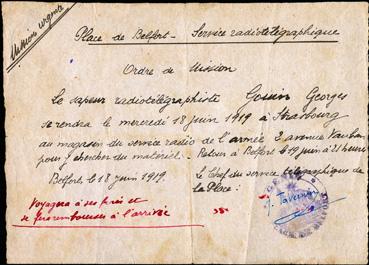 Mission urgente
Place de Belfort - Service radiotélégraphique
Ordre de Mission
Le sapeur radiotélégraphiste Gouin Georges
se rendra le mercredi 18 juin 1919 à Strasbourg
au magasin du service radio de l'armée 2 avenue Vauban
pour y chercher du matériel. - Retour à Belfort le 19 juin à 21 heures
Belfort, le 18 juin 1919.
Le Chef du service télégraphique de
la Place :
Voyagera à ses frais et
se fera rembourser à l'arrivée